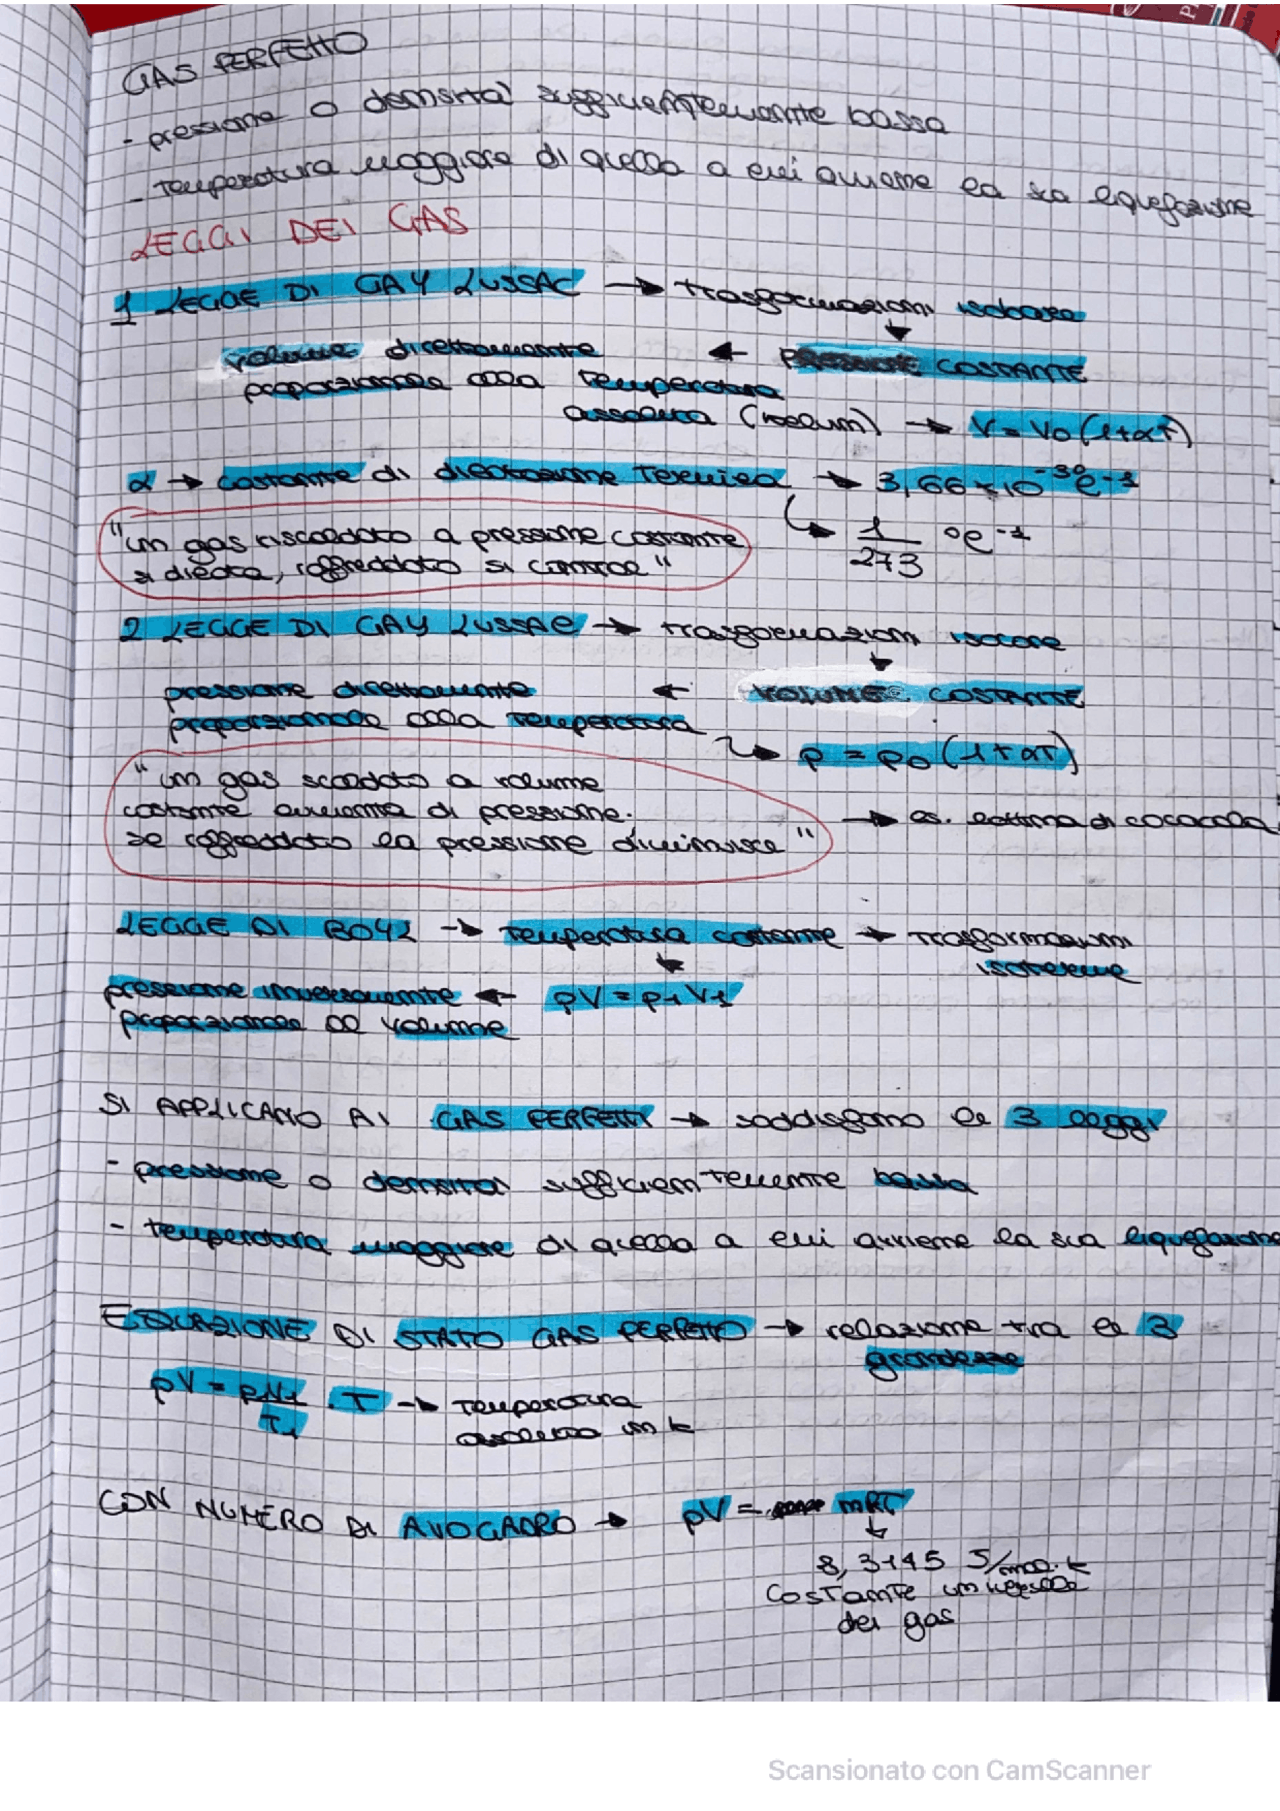 GAS PERFETTO
- pressione o densità sufficientemente bassa
- temperatura maggiore di quella a cui avviene la sua liquefazione
LEGGI DEI GAS
1 LEGGE DI GAY LUSSAC → trasformazioni isobare
volume direttamente ← PRESSIONE COSTANTE
proporzionale alla temperatura
assoluta (kelvin) → V = V0 (1+αT)
α → costante di dilatazione termica → 3,66 × 10⁻³ °C⁻¹
"un gas riscaldato a pressione costante → 1/273 °C⁻¹
si dilata, raffreddato si contrae"
2 LEGGE DI GAY LUSSAC → trasformazioni isocore
pressione direttamente ← VOLUME COSTANTE
proporzionale alla temperatura
→ p = p0 (1+αT)
"un gas scaldato a volume
costante aumenta di pressione. → es. lattina di cocacola
se raffreddato la pressione diminuisce"
LEGGE DI BOYL → temperatura costante → trasformazioni
isoterme
pressione inversamente ← pV = p1 V1
proporzionale al volume
SI APPLICANO AI GAS PERFETTI → soddisfano le 3 leggi
- pressione o densità sufficientemente bassa
- temperatura maggiore di quella a cui avviene la sua liquefazione
EQUAZIONE DI STATO GAS PERFETTO → relazione tra le 3
grandezze
pV = p1V1/T1 · T → temperatura
assoluta in k
CON NUMERO DI AVOGADRO → pV = nRT
8,3145 J/mol·k
costante universale
dei gas
Scansionato con CamScanner